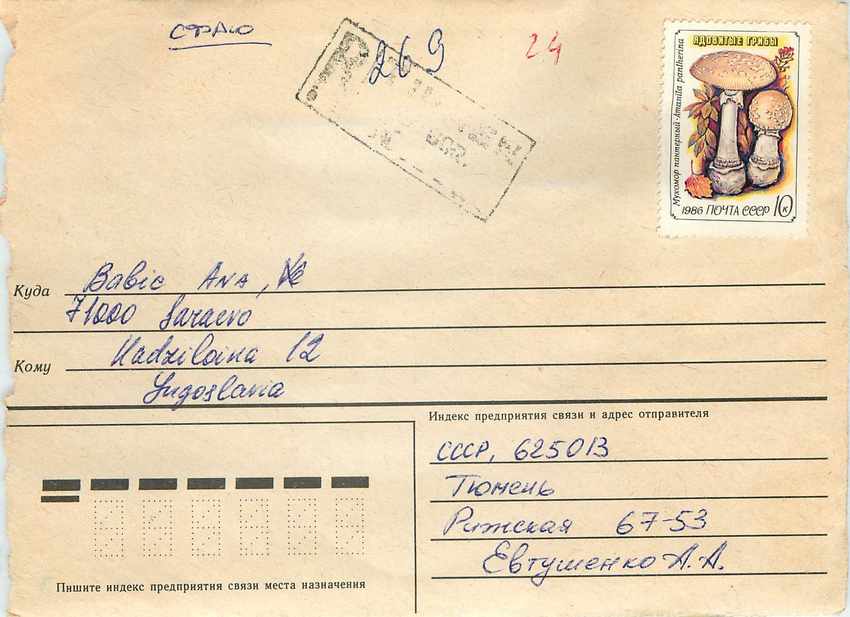 СФРЮ
269
24
ЯДОВИТЫЕ ГРИБЫ
Мухомор пантерный·Amanita pantherina
1986 ПОЧТА СССР 10к
Куда
Babic Ana,
71000 Saraevo
Кому
Hadziloina 12
Jugoslavia
Индекс предприятия связи и адрес отправителя
СССР, 625013
Тюмень
Рижская 67-53
Евтушенко А.А.
Пишите индекс предприятия связи места назначения